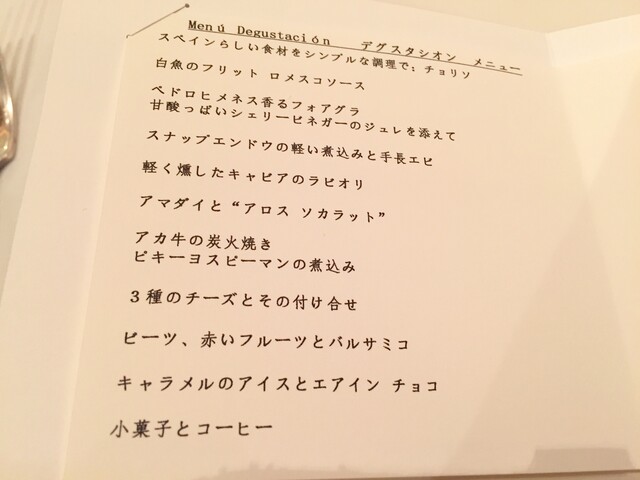 Menú Degustación デグスタシオン メニュー
スペインらしい食材をシンプルな調理で；チョリソ
白魚のフリット ロメスコソース
ペドロヒメネス香るフォアグラ
甘酸っぱいシェリービネガーのジュレを添えて
スナップエンドウの軽い煮込みと手長エビ
軽く燻したキャビアのラビオリ
アマダイと“アロス ソカラット”
アカ牛の炭火焼き
ピキーヨスピーマンの煮込み
３種のチーズとその付け合せ
ビーツ、赤いフルーツとバルサミコ
キャラメルのアイスとエアイン チョコ
小菓子とコーヒー